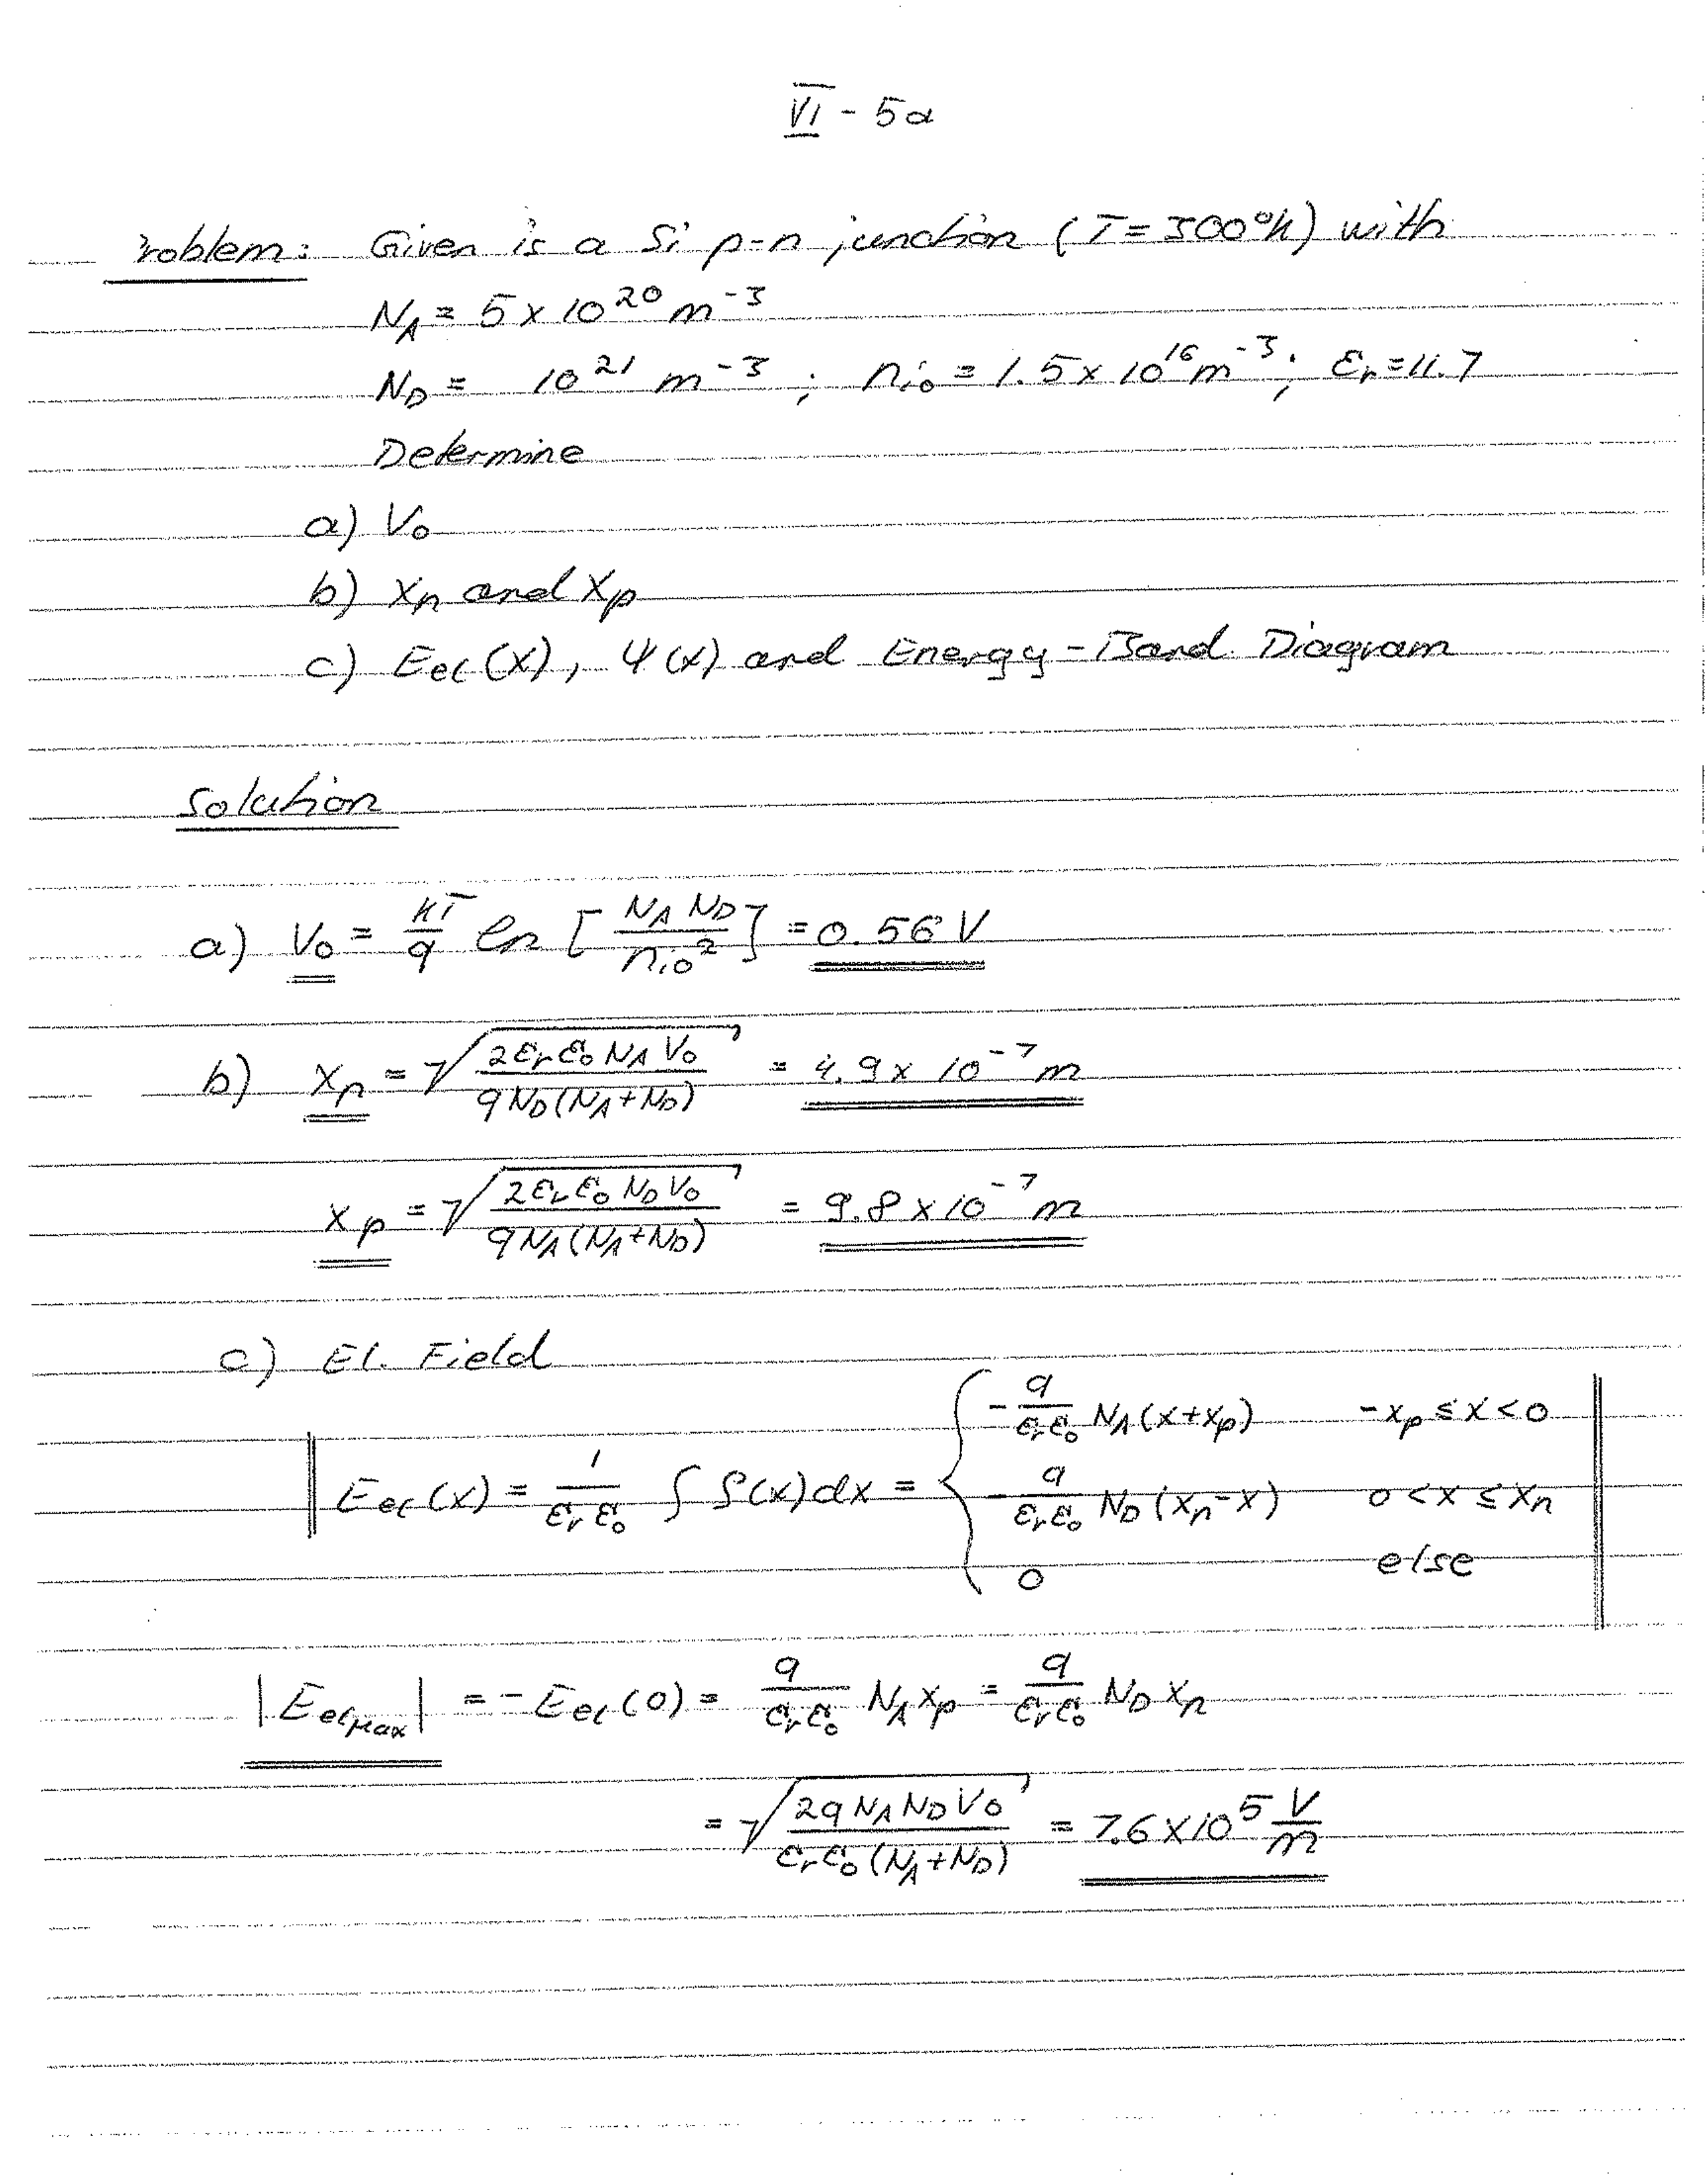 VI - 5a
Problem: Given is a Si p-n junction (T = 300°K) with
N_A = 5 x 10^20 m^-3
N_D = 10^21 m^-3 ; n_io = 1.5 x 10^16 m^-3 ; ε_r = 11.7
Determine
a) V_o
b) x_n and x_p
c) E_el (x), Ψ (x) and Energy-Band Diagram
Solution
a) V_o = kT/q ln [ N_A N_D / n_io^2 ] = 0.56 V
b) x_n = √( 2 ε_r ε_o N_A V_o / q N_D (N_A + N_D) ) = 4.9 x 10^-7 m
x_p = √( 2 ε_r ε_o N_D V_o / q N_A (N_A + N_D) ) = 9.8 x 10^-7 m
c) El. Field
E_el (x) = 1/(ε_r ε_o) ∫ ρ(x) dx = { - q/(ε_r ε_o) N_A (x + x_p) -x_p ≤ x < 0
- q/(ε_r ε_o) N_D (x_n - x) 0 < x ≤ x_n
0 else
|E_el_Max| = - E_el (0) = q/(ε_r ε_o) N_A x_p = q/(ε_r ε_o) N_D x_n
= √( 2 q N_A N_D V_o / ε_r ε_o (N_A + N_D) ) = 7.6 x 10^5 V/m